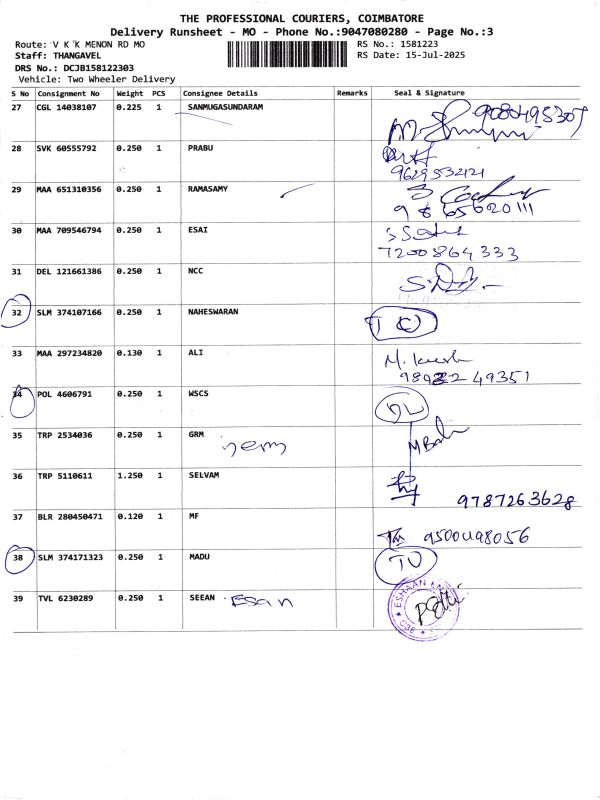 THE PROFESSIONAL COURIERS, COIMBATORE
Delivery Runsheet - MO - Phone No.:9047080280 - Page No.:3
Route: V K K MENON RD MO RS No.: 1581223
Staff: THANGAVEL RS Date: 15-Jul-2025
DRS No.: DCJB158122303
Vehicle: Two Wheeler Delivery
S No Consignment No Weight PCS Consignee Details Remarks Seal & Signature
27 CGL 14038107 0.225 1 SANMUGASUNDARAM 9080495307
28 SVK 60555792 0.250 1 PRABU
9629532121
29 MAA 651310356 0.250 1 RAMASAMY
9865620111
30 MAA 709546794 0.250 1 ESAI
7200864333
31 DEL 121661386 0.250 1 NCC
32 SLM 374107166 0.250 1 NAHESWARAN
33 MAA 297234820 0.130 1 ALI
34 POL 4606791 0.250 1 WSCS DL
35 TRP 2534036 0.250 1 GRM
36 TRP 5110611 1.250 1 SELVAM
9787263628
37 BLR 280450471 0.120 1 MF
9500498056
38 SLM 374171323 0.250 1 MADU TU
39 TVL 6230289 0.250 1 SEEAN Esan